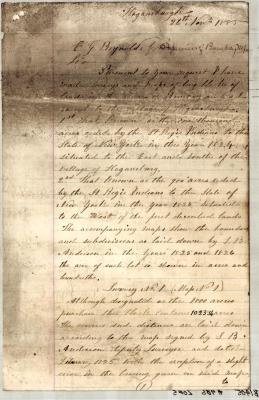 Hogansburgh
26th Novr 1885
E. G. Reynolds
Sir
Pursuant to your request I have
made surveys and maps of
1st That known as the one thousand
acres ceded by the St Regis Indians to the
State of New York in the Year 1824
situated to the East and south of the
village of Hogansburg
2nd That known as the acres ceded
by the St Regis Indians to the State of
New York in the Year 1825 situated
to the West of the first described lands
The accompanying maps show the boundaries
and subdivisions as laid down by I. B.
Anderson in the Years 1825 and 1826
the area of each lot is shown in acres and
hundredths.
Survey No 1 (Map No 1)
Although designated as the 1000 acres
purchase this contains 1023 acres
The courses and distances are laid down
according to the map signed by I. B.
Anderson Deputy Surveyor and dated
1825 with the exception of a slight
error in the bearing given on said map
to
(1)